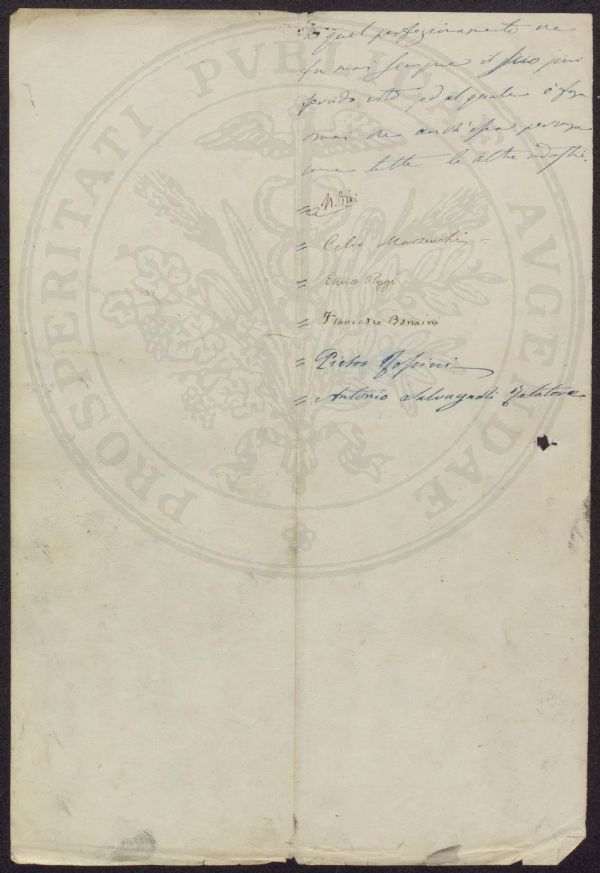 a quel perfezionamento ne
fu mai sempre il suo più
fervido voto, ed al quale è forza
ormai che anch'essa pervenga
come tutte le altre industrie.
Celso Marzucchi
Enrico Poggi
Francesco Bonaini
Pietro Rossini
Antonio Salvagnoli Relatore
PROSPERITATI PVBLICAE AVGENDAE